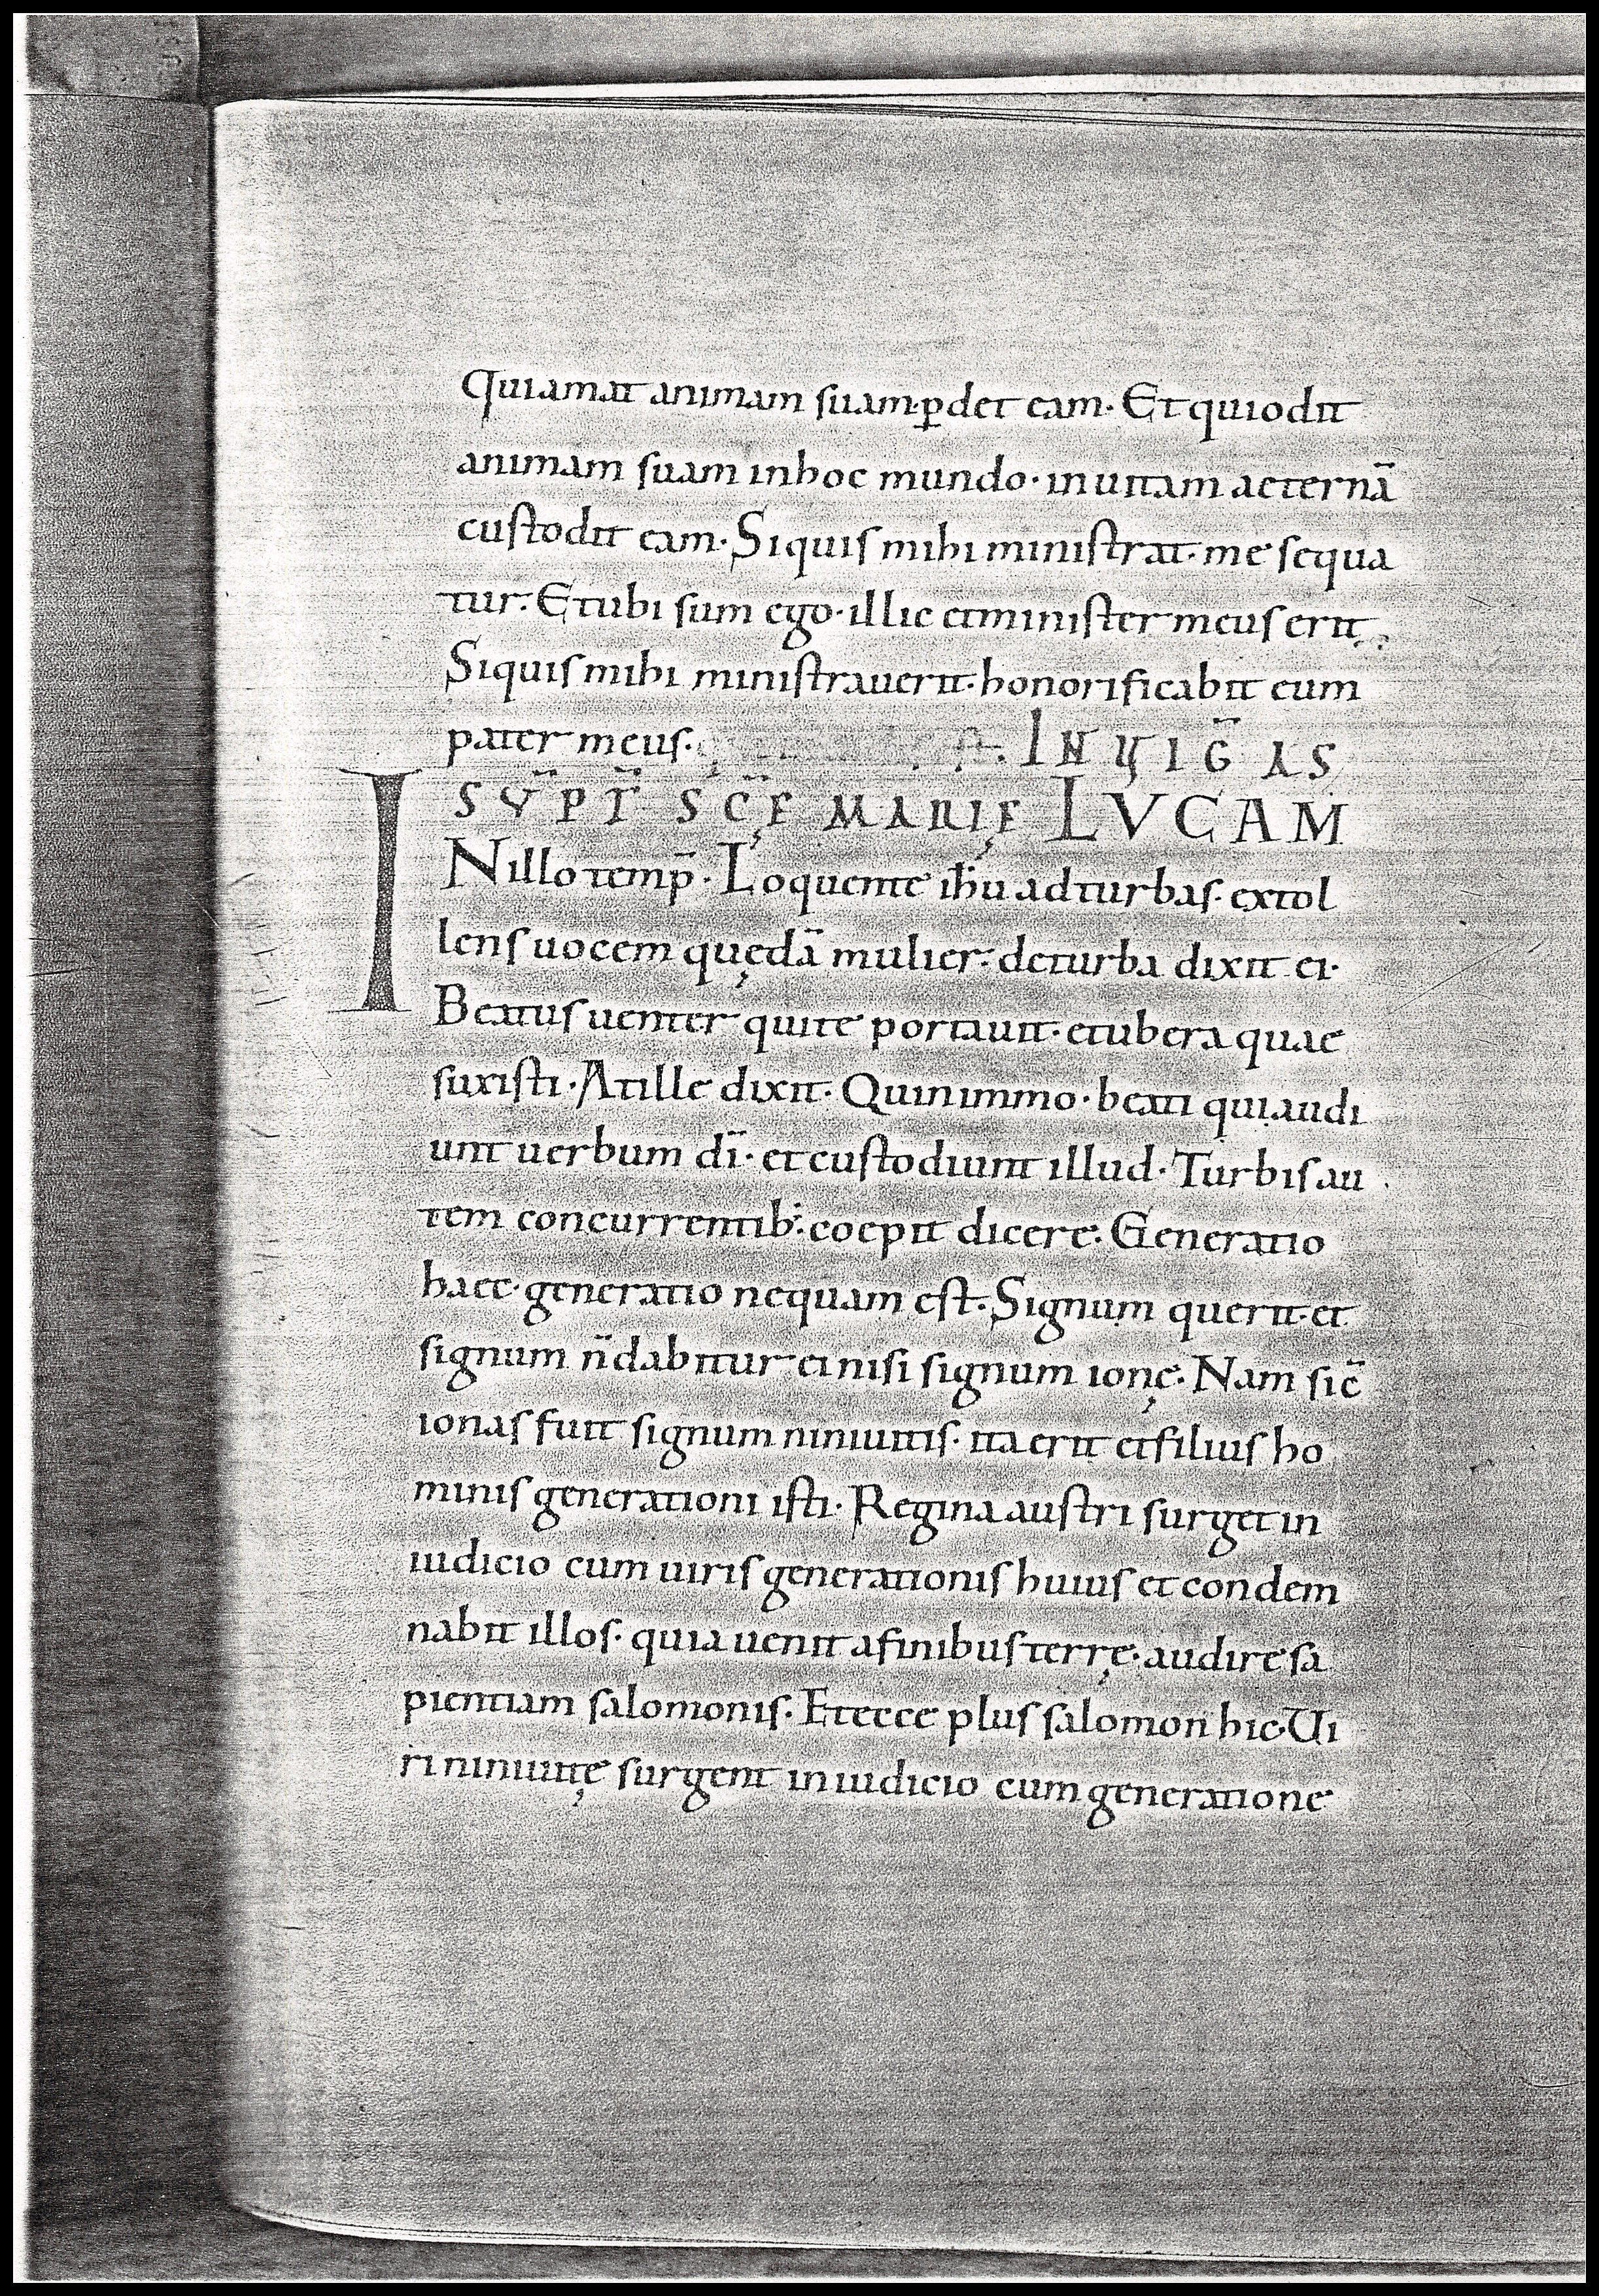 Qui amat animam suam· p̱det eam· Et qui odit
animam suam in hoc mundo· in uitam aeternā
custodit eam· Siquis mihi ministrat· me sequa
tur· Et ubi sum ego· illic et minister meus erit
Siquis mihi ministrauerit· honorificabit eum
pater meus· IN UIG̅ AS
SV̅PT̅ SC̅Ę MARIĘ LVCAM
IN illo temp̄· Loquente ih̅u ad turbas· extol
lens uocem quędā mulier· de turba dixit ei·
Beatus uenter qui te portauit· et ubera quae
suxisti· At ille dixit· Quinimmo· beati qui audi
unt uerbum dī· et custodiunt illud· Turbis au
tem concurrentib:· coepit dicere· Generatio
haec· generatio nequam est· Signum querit· et
signum n̄ dabitur ei nisi signum ionę· Nam sic̄
ionas fuit signum niniuitis· ita erit et filius ho
minis generationi isti· Regina austri surget in
iudicio cum uiris generationis huius et condem
nabit illos· quia uenit a finibus terrę· audire sa
pientiam salomonis· Et ecce plus salomon hic· Ui
ri niniuitę surgent in iudicio cum generatione